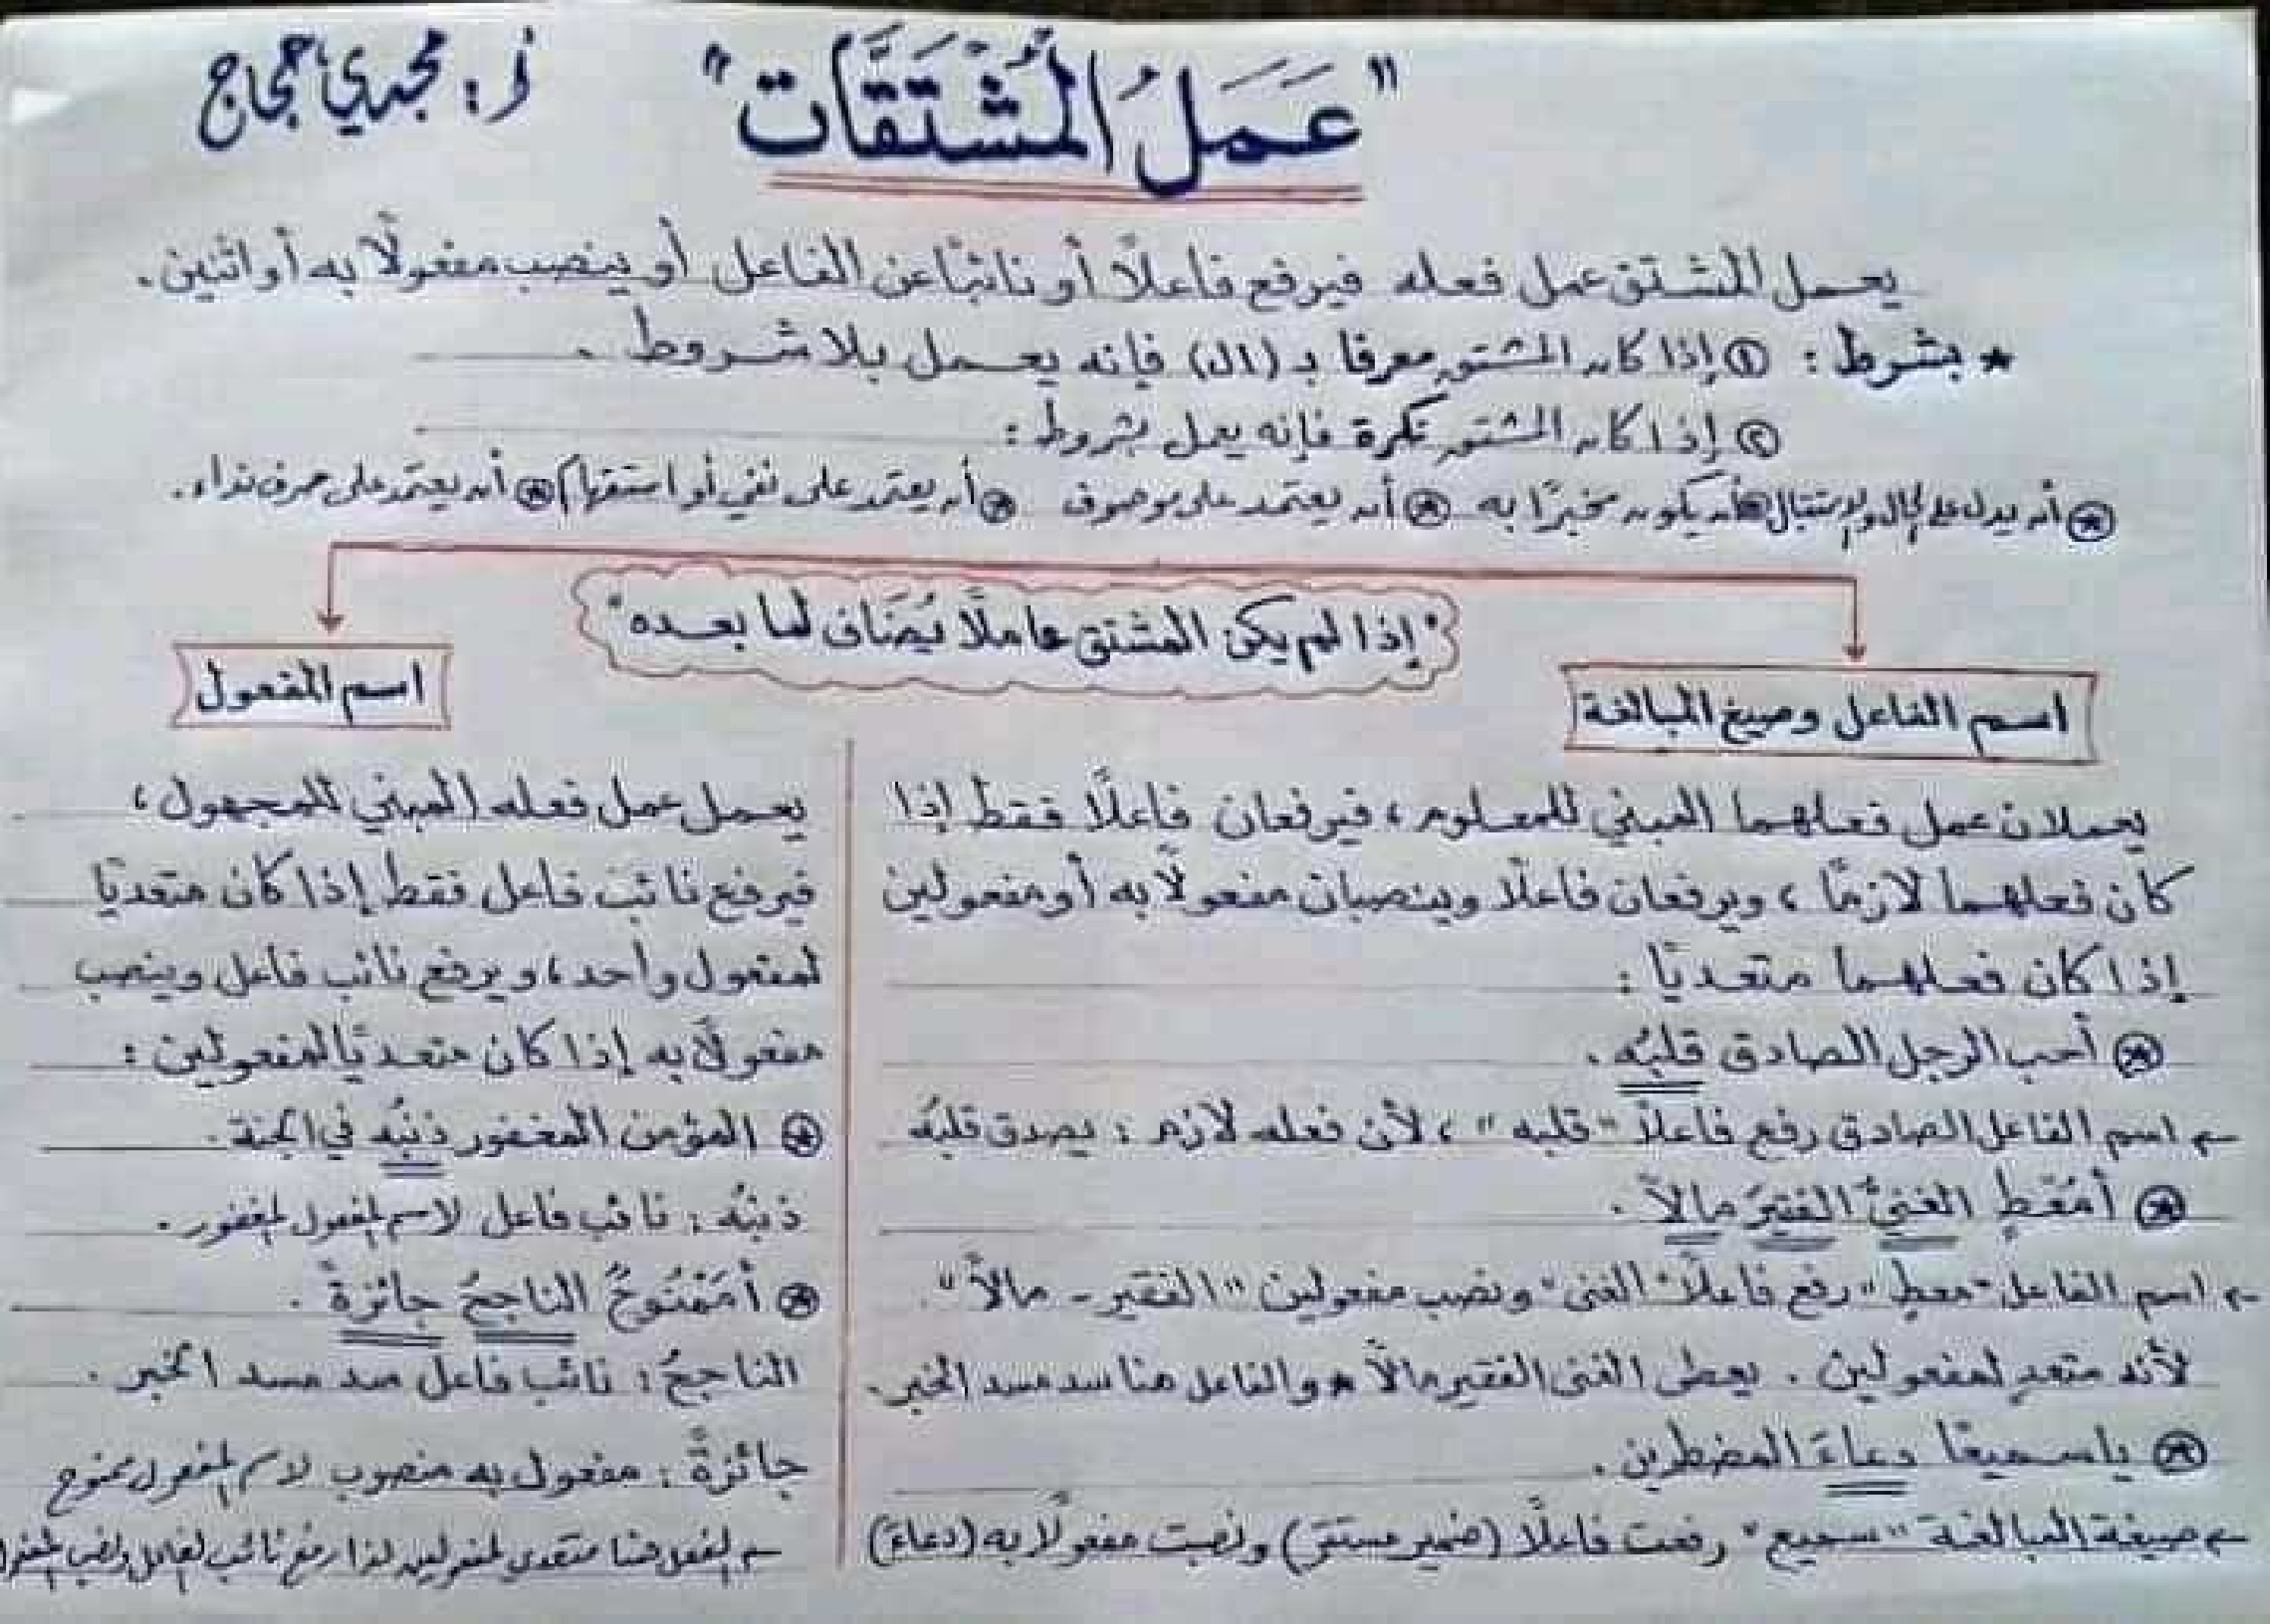 "عَمَلُ المُشْتَقَّات"
أ: مجدي حجاج
يعمل المشتق عمل فعله فيرفع فاعلًا أو نائبًا عن الفاعل أو ينصب مفعولًا به أو اثنين.
* بشرط: ① إذا كان المشتق معرفا بـ (ال) فإنه يعمل بلا شروط.
② إذا كان المشتق نكرة فإنه يعمل بشروط:
* أن يدل على الحال والاستقبال * أن يكون مخبرًا به * أن يعتمد على موصوف * أن يعتمد على نفي أو استفهام * أن يعتمد على حرف نداء.
"إذا لم يكن المشتق عاملًا يُضَاف لما بعده"
اسم الفاعل وصيغ المبالغة
يعملان عمل فعلهما المبني للمعلوم، فيرفعان فاعلًا فقط إذا
كان فعلهما لازمًا، ويرفعان فاعلًا وينصبان مفعولًا به أو مفعولين
إذا كان فعلهما متعديًا:
* أحب الرجل الصادق قلبُه.
← اسم الفاعل الصادق رفع فاعلًا "قلبه"، لأن فعله لازم: يصدق قلبُه
* أمُعْطٍ الغنيُّ الفقيرَ مالًا.
← اسم الفاعل "معطٍ" رفع فاعلًا "الغنى" ونصب مفعولين "الفقير - مالًا".
لأنه متعدٍ لمفعولين. يعطى الغنى الفقير مالًا * والفاعل هنا سد مسد الخبر.
* يا سميعًا دعاءَ المضطرين.
← صيغة المبالغة "سميع" رفعت فاعلًا (ضمير مستتر) ونصبت مفعولًا به (دعاءَ)
اسم المفعول
يعمل عمل فعله المبني للمجهول،
فيرفع نائب فاعل فقط إذا كان متعديًا
لمفعول واحد، ويرفع نائب فاعل وينصب
مفعولًا به إذا كان متعديًا لمفعولين:
* المؤمن المغفور ذنبُه في الجنة.
ذنبُه: نائب فاعل لاسم المفعول المغفور.
* أمَمْنُوحٌ الناجحُ جائزةً.
الناجحُ: نائب فاعل سد مسد الخبر.
جائزةً: مفعول به منصوب لاسم المفعول ممنوح
← الفعل هنا متعدي لمفعولين لذا رفع نائب الفاعل ونصب المفعول